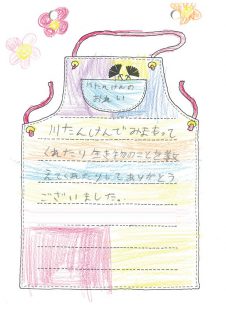 川たんけんの
お礼い
川たんけんでみまもって
くれたり生き物のことを教
えてくれたりしてありがとう
ございました。